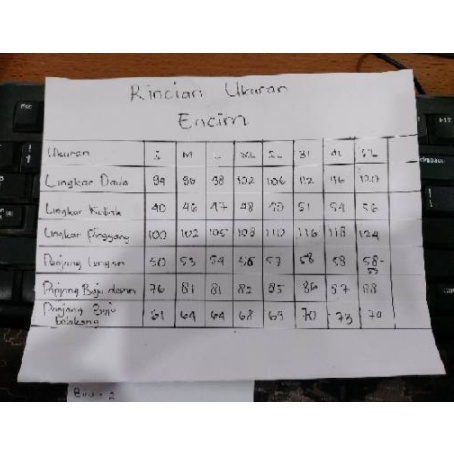 Rincian Ukuran
Encim
Ukuran S M L XL 3L 4L 5L
Lingkar Dada 94 96 98 102 106 112 116 120
Lingkar 40 46 47 48 50 51 54 56
Lingkar Pinggang 100 102 105 108 110 116 118 124
Panjang Lengan 50 53 54 56 57 58 58
Panjang Baju depan 76 81 81 85 86 87 88
Panjang Baju
Belakang 61 64 64 68 69 70 73 70